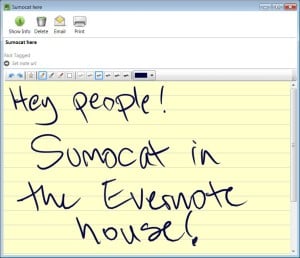 Sumocat here
Show Info Delete Email Print
Sumocat here
Not Tagged
Set note url
Hey people!
Sumocat in
the Evernote
house!